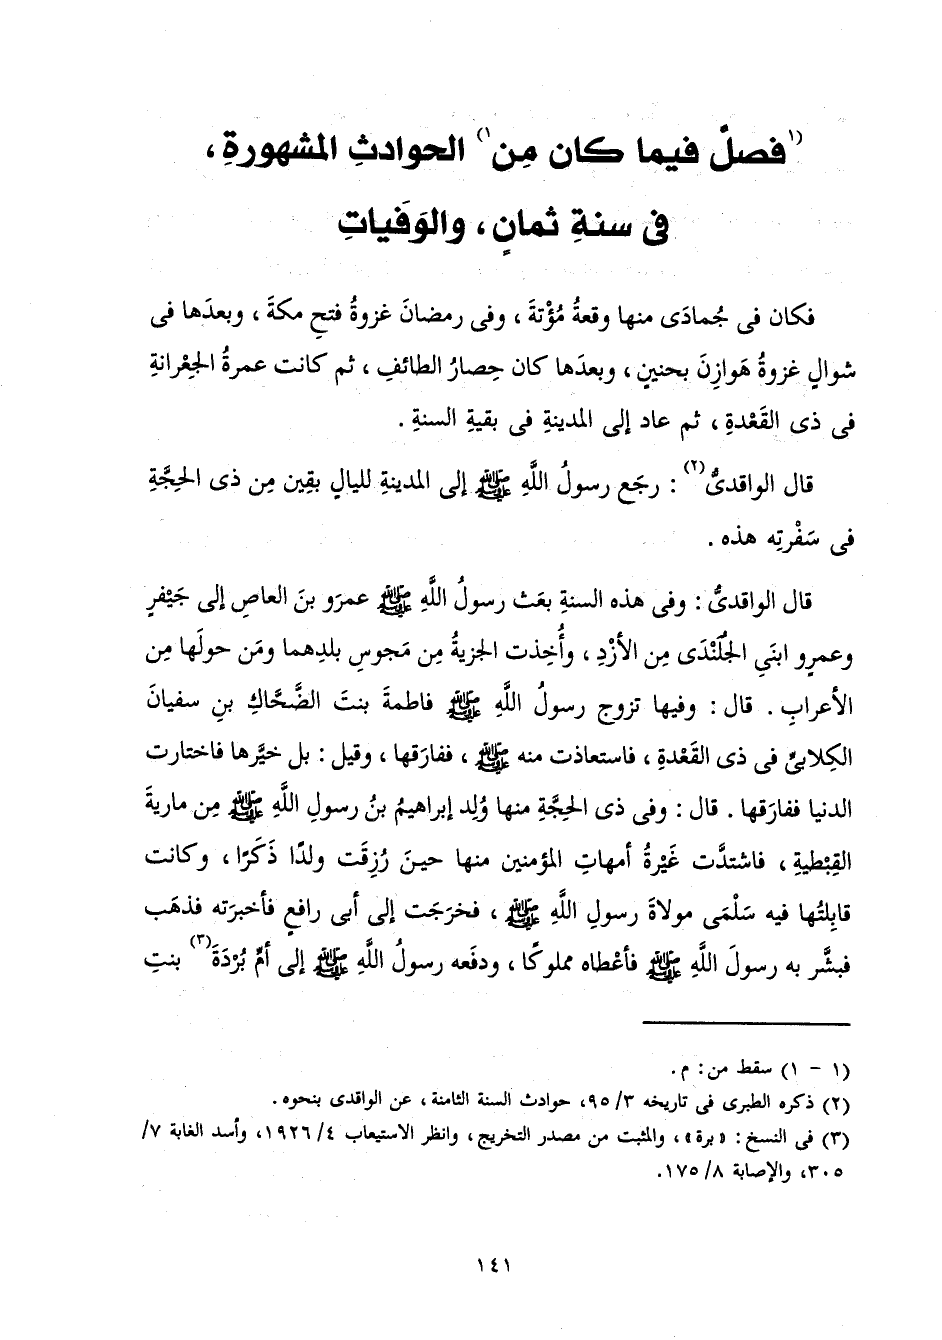 (١فصلٌ فيما كان مِن١) الحوادثِ المشهورةِ،
فى سنةِ ثمانٍ، والوَفَياتِ
فكان فى جُمادَى منها وقعةُ مُؤْتةَ، وفى رمضانَ غزوةُ فتحِ مكةَ، وبعدَها فى
شوالٍ غزوةُ هَوازِنَ بحنينٍ، وبعدَها كان حِصارُ الطائفِ، ثم كانت عمرةُ الجِعْرانةِ
فى ذى القَعْدةِ، ثم عاد إلى المدينةِ فى بقيةِ السنةِ.
قال الواقدىُّ(٢): رجَع رسولُ اللَّهِ ﷺ إلى المدينةِ لليالٍ بقِين مِن ذى الحِجَّةِ
فى سَفْرتِه هذه.
قال الواقدىُّ: وفى هذه السنةِ بعَث رسولُ اللَّهِ ﷺ عمرَو بنَ العاصِ إلى جَيْفرٍ
وعمرٍو ابنَىِ الجُلَنْدَى مِن الأزْدِ، وأُخِذت الجزيةُ مِن مَجوسِ بلدِهما ومَن حولَها مِن
الأعرابِ. قال: وفيها تزوج رسولُ اللَّهِ ﷺ فاطمةَ بنتَ الضَّحَّاكِ بنِ سفيانَ
الكِلابىِّ فى ذى القَعْدةِ، فاستعاذت منه ﷺ، ففارَقها، وقيل: بل خيَّرها فاختارت
الدنيا ففارَقها. قال: وفى ذى الحِجَّةِ منها وُلِد إبراهيمُ بنُ رسولِ اللَّهِ ﷺ مِن ماريةَ
القِبْطيةِ، فاشتدَّت غَيْرةُ أمهاتِ المؤمنين منها حينَ رُزِقَت ولدًا ذَكَرًا، وكانت
قابِلتُها فيه سَلْمَى مولاةَ رسولِ اللَّهِ ﷺ، فخرَجت إلى أبى رافعٍ فأخبرَته فذهَب
فبشَّر به رسولَ اللَّهِ ﷺ فأعْطاه مملوكًا، ودفَعه رسولُ اللَّهِ ﷺ إلى أمِّ بُرْدَةَ(٣) بنتِ
(١ - ١) سقط من: م.
(٢) ذكره الطبرى فى تاريخه ٣/ ٩٥، حوادث السنة الثامنة، عن الواقدى بنحوه.
(٣) فى النسخ: «برة»، والمثبت من مصدر التخريج، وانظر الاستيعاب ٤/ ١٩٢٦، وأسد الغابة ٧/
٣٠٥، والإصابة ٨/ ١٧٥.
١٤١